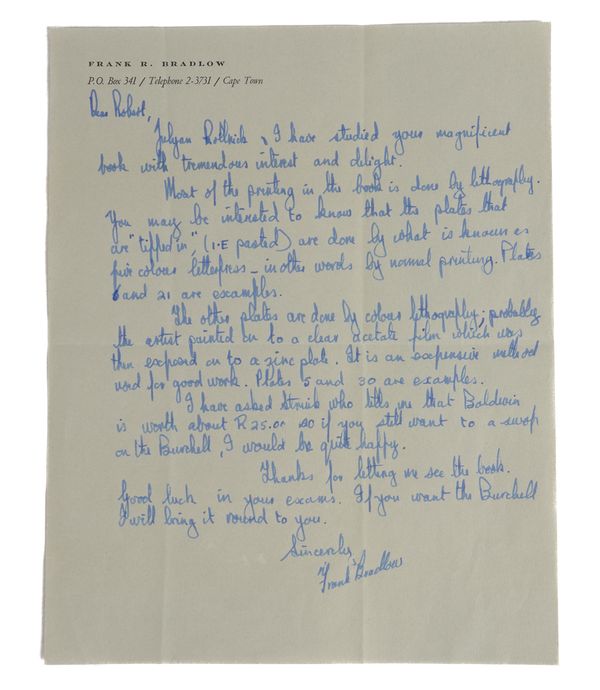 FRANK R. BRADLOW
P.O. Box 341 / Telephone 2-3731 / Cape Town
Dear Robert,
Julyan Rollnick & I have studied your magnificent
book with tremendous interest and delight.
Most of the printing in the book is done by lethography.
You may be interested to know that the plates that
are "tipped in", (I.E pasted) are done by what is known as
five colour letterpress - in other words by normal printing. Plates
6 and 21 are examples.
The other plates are done by colour lethography; probably
the artist painted on to a clear acetate film which was
then exposed on to a zinc plate. It is an expensive method
used for good work. Plates 5 and 30 are examples.
I have asked Struik who tells me that Baldwin
is worth about R25.00 so if you still want to a swop
on the Burchell, I would be quite happy.
Thanks for letting me see the book.
Good luck in your exams. If you want the Burchell
I will bring it round to you.
Sincerely,
Frank Bradlow